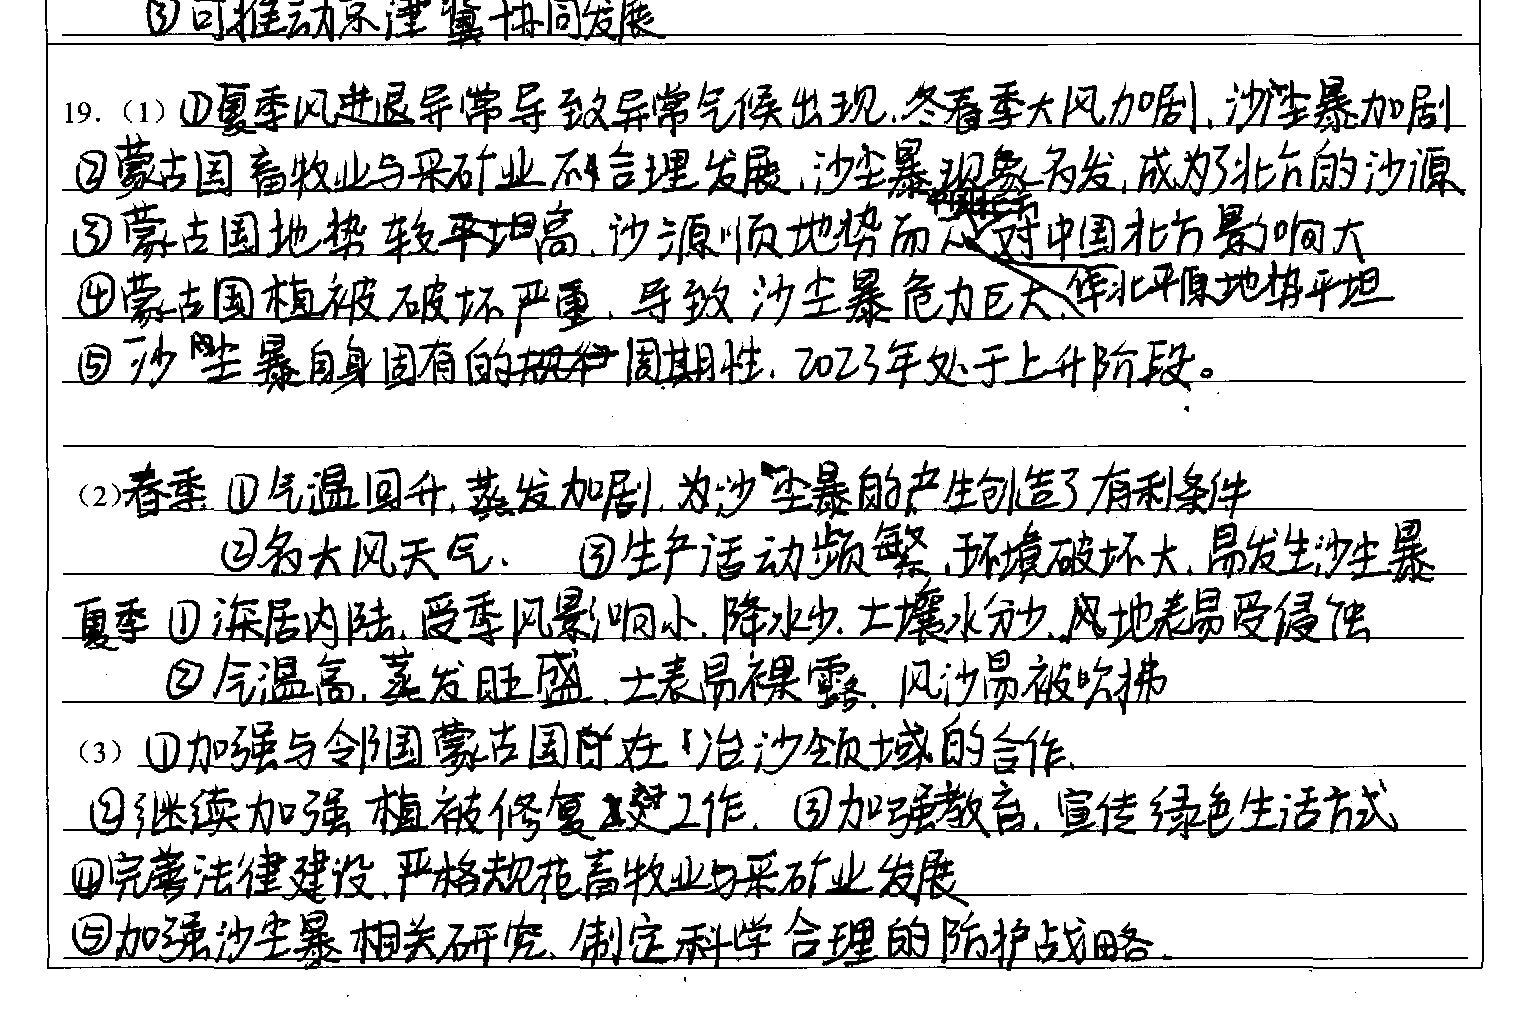 ③可推动京津冀协同发展
19.（1）①夏季风进退异常导致异常气候出现,冬春季大风加剧,沙尘暴加剧
②蒙古国畜牧业与采矿业不合理发展,沙尘暴现象多发,成为了北方的沙源
③蒙古国地势较高,沙源顺地势而 对中国北方影响大
④蒙古国植被破坏严重,导致沙尘暴危力巨大, 华北平原地势平坦
⑤沙尘暴自身固有的周期性,2023年处于上升阶段。
（2）春季①气温回升,蒸发加剧,为沙尘暴的产生创造了有利条件
②多大风天气. ③生产活动频繁,环境破坏大,易发生沙尘暴
夏季①深居内陆,受季风影响小,降水少,土壤水分少,风地表易受侵蚀
②气温高,蒸发旺盛,土表易裸露,风沙易被吹拂
（3）①加强与邻国蒙古国在治沙领域的合作.
②继续加强植被修复工作. ③加强教育,宣传绿色生活方式
④完善法律建设,严格规范畜牧业与采矿业发展
⑤加强沙尘暴相关研究,制定科学合理的防护战略.